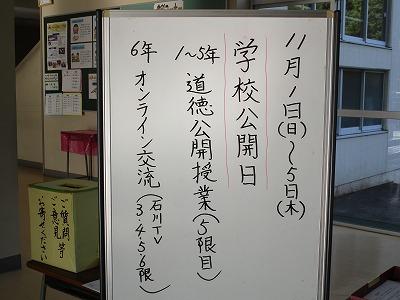 11月1日(日)〜5日(木)
学校公開日
1〜5年 道徳公開授業(5限目)
6年 オンライン交流(石川TV 3、4、5、6限)
ご質問等
ご意見
お寄せください